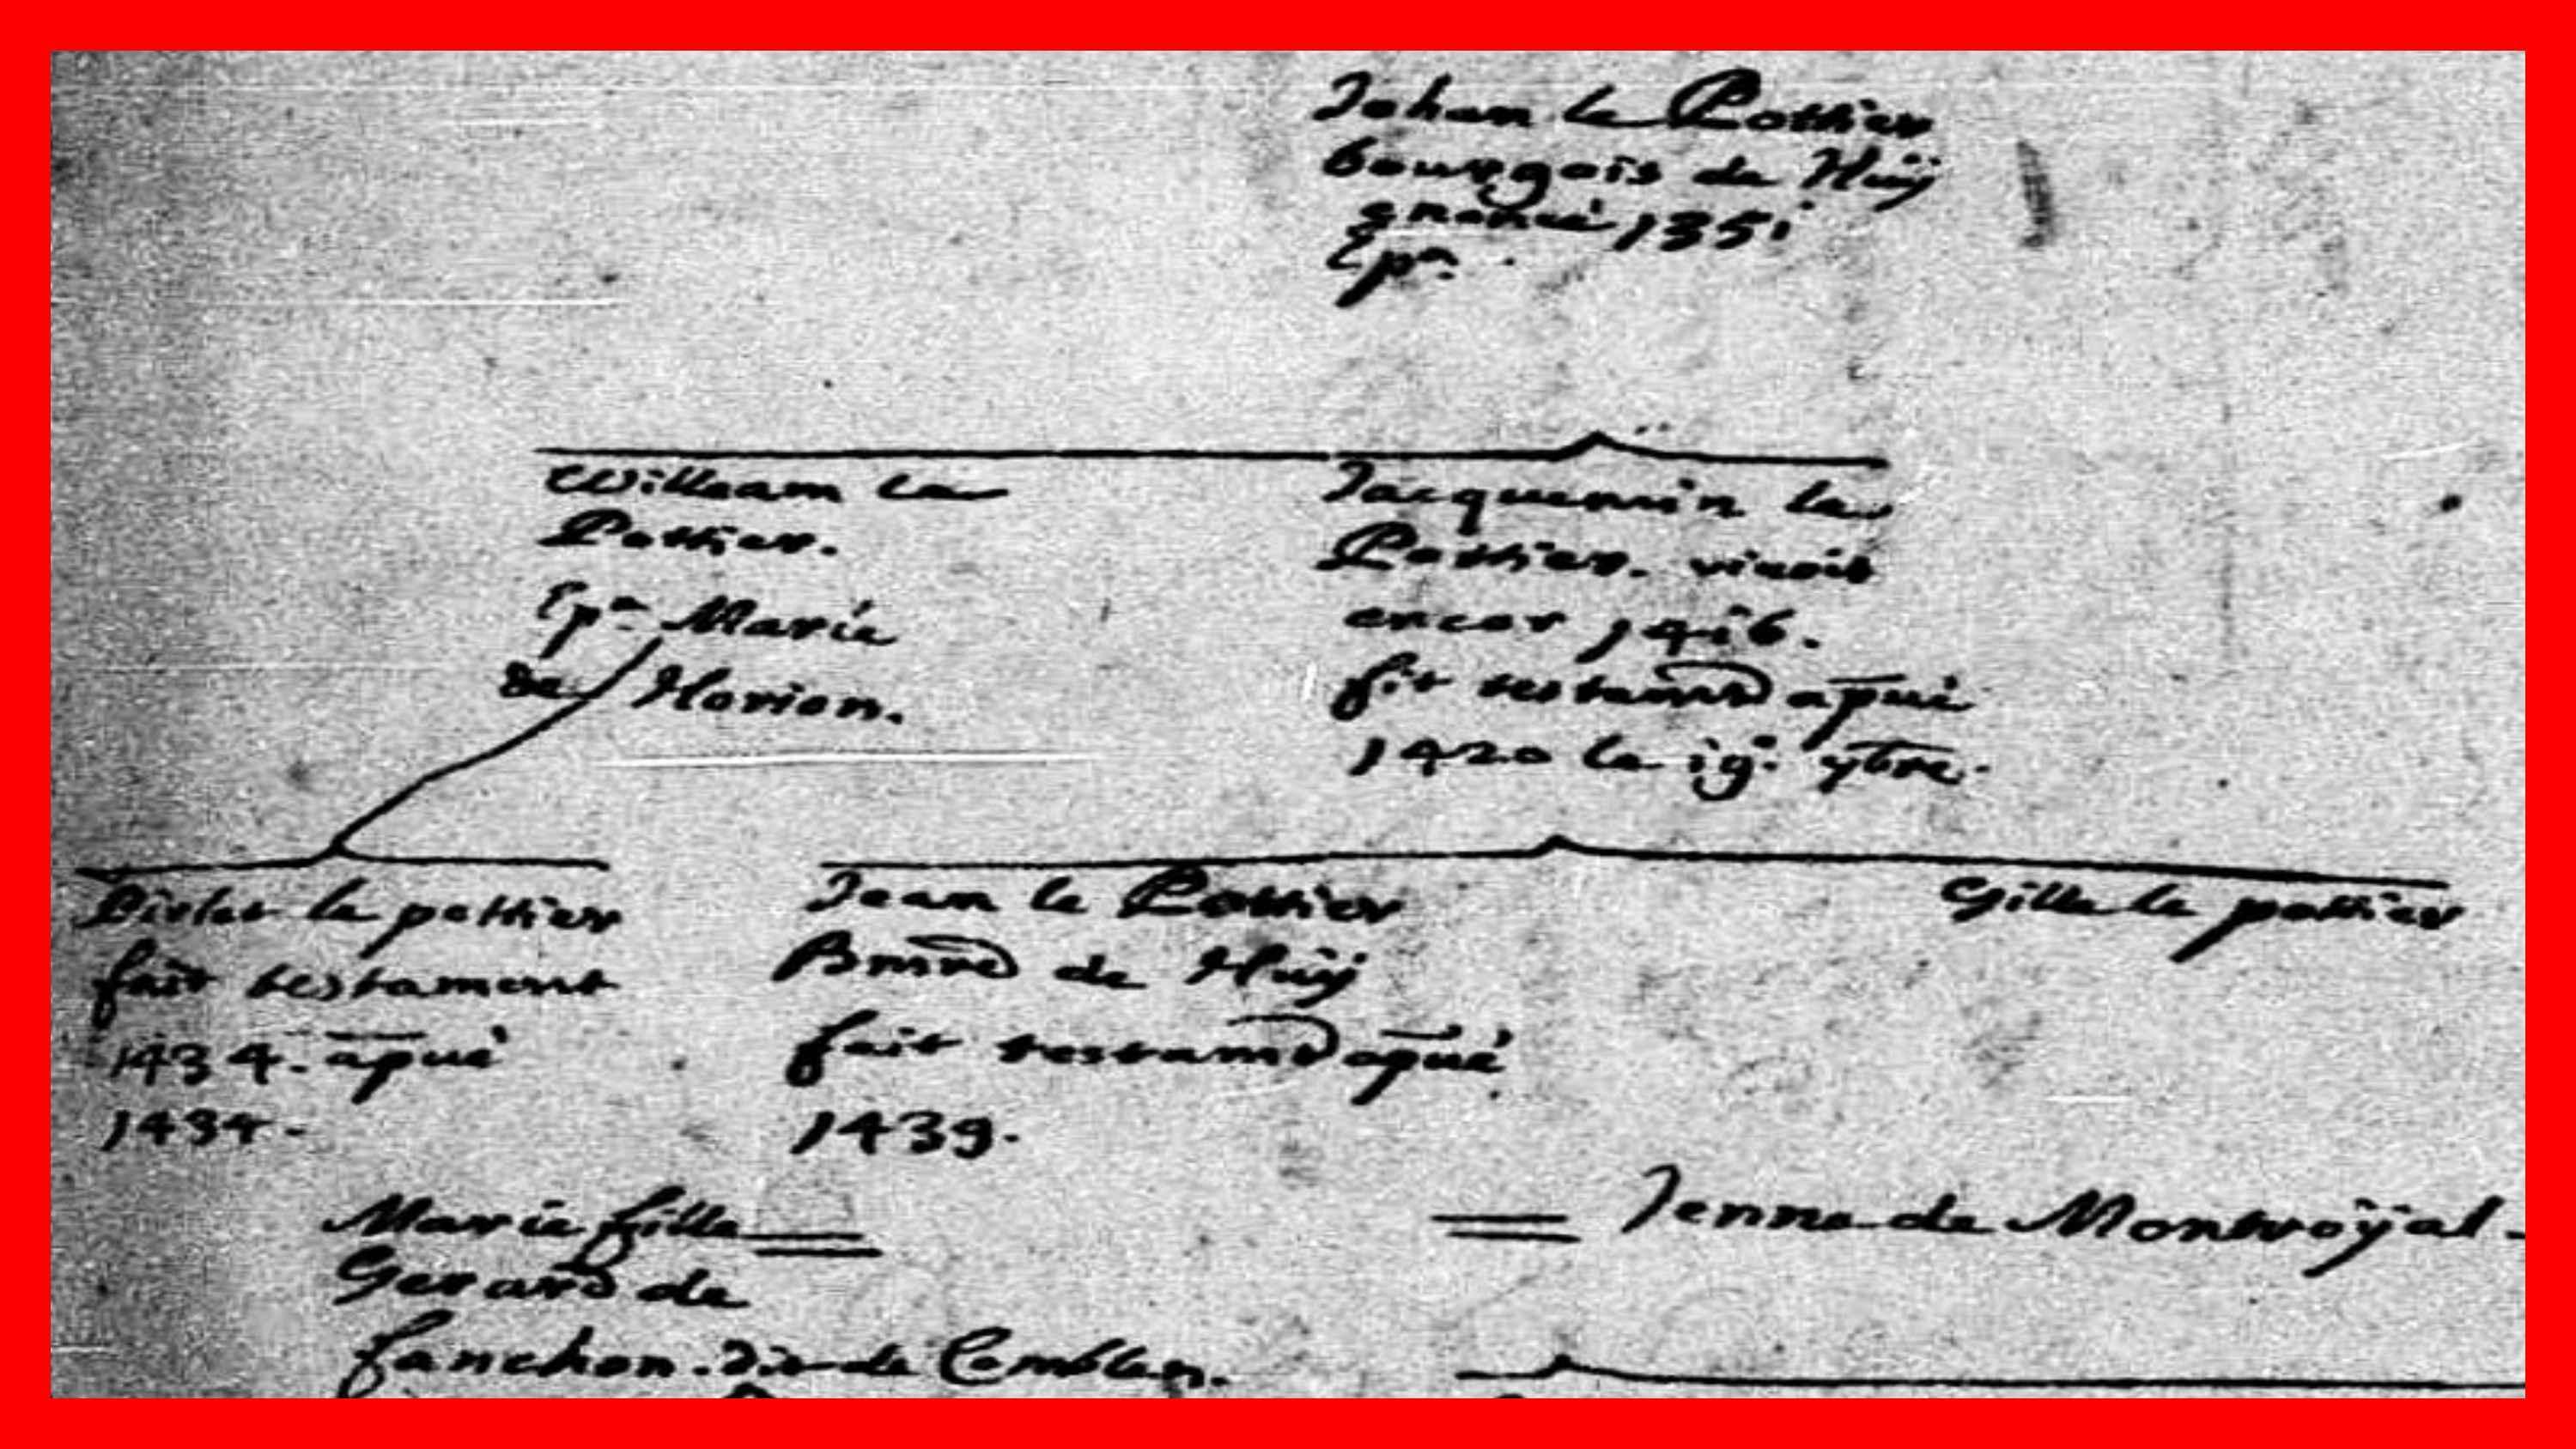 Johan le Pottier
bourgois de Huÿ
1351
Ep.
Willeam le
Pottier.
Ep. Marie
de Horion.
Jacquemin le
Pottier. vivoit
encor 1416.
fit testamt apué
1420 le 19. 7bre.
le pottier
fait testament
1434. apué
1434.
Jean le Pottier
de Huÿ
fait testamt apué
1439.
Gille le pottier
Marie fille
Gerard de
fanchon. dit de Comblen.
Jenne de Montroÿal.